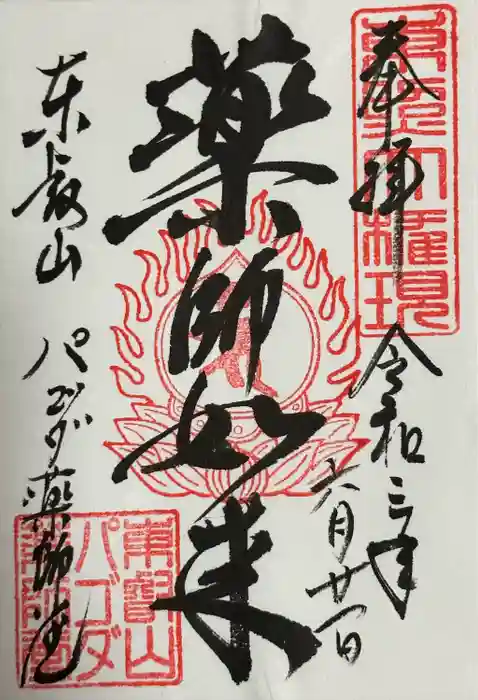 奉拝
令和三年
六月廿一日
薬師如来
東叡山 パゴダ薬師堂
東叡山
パゴダ
薬師堂